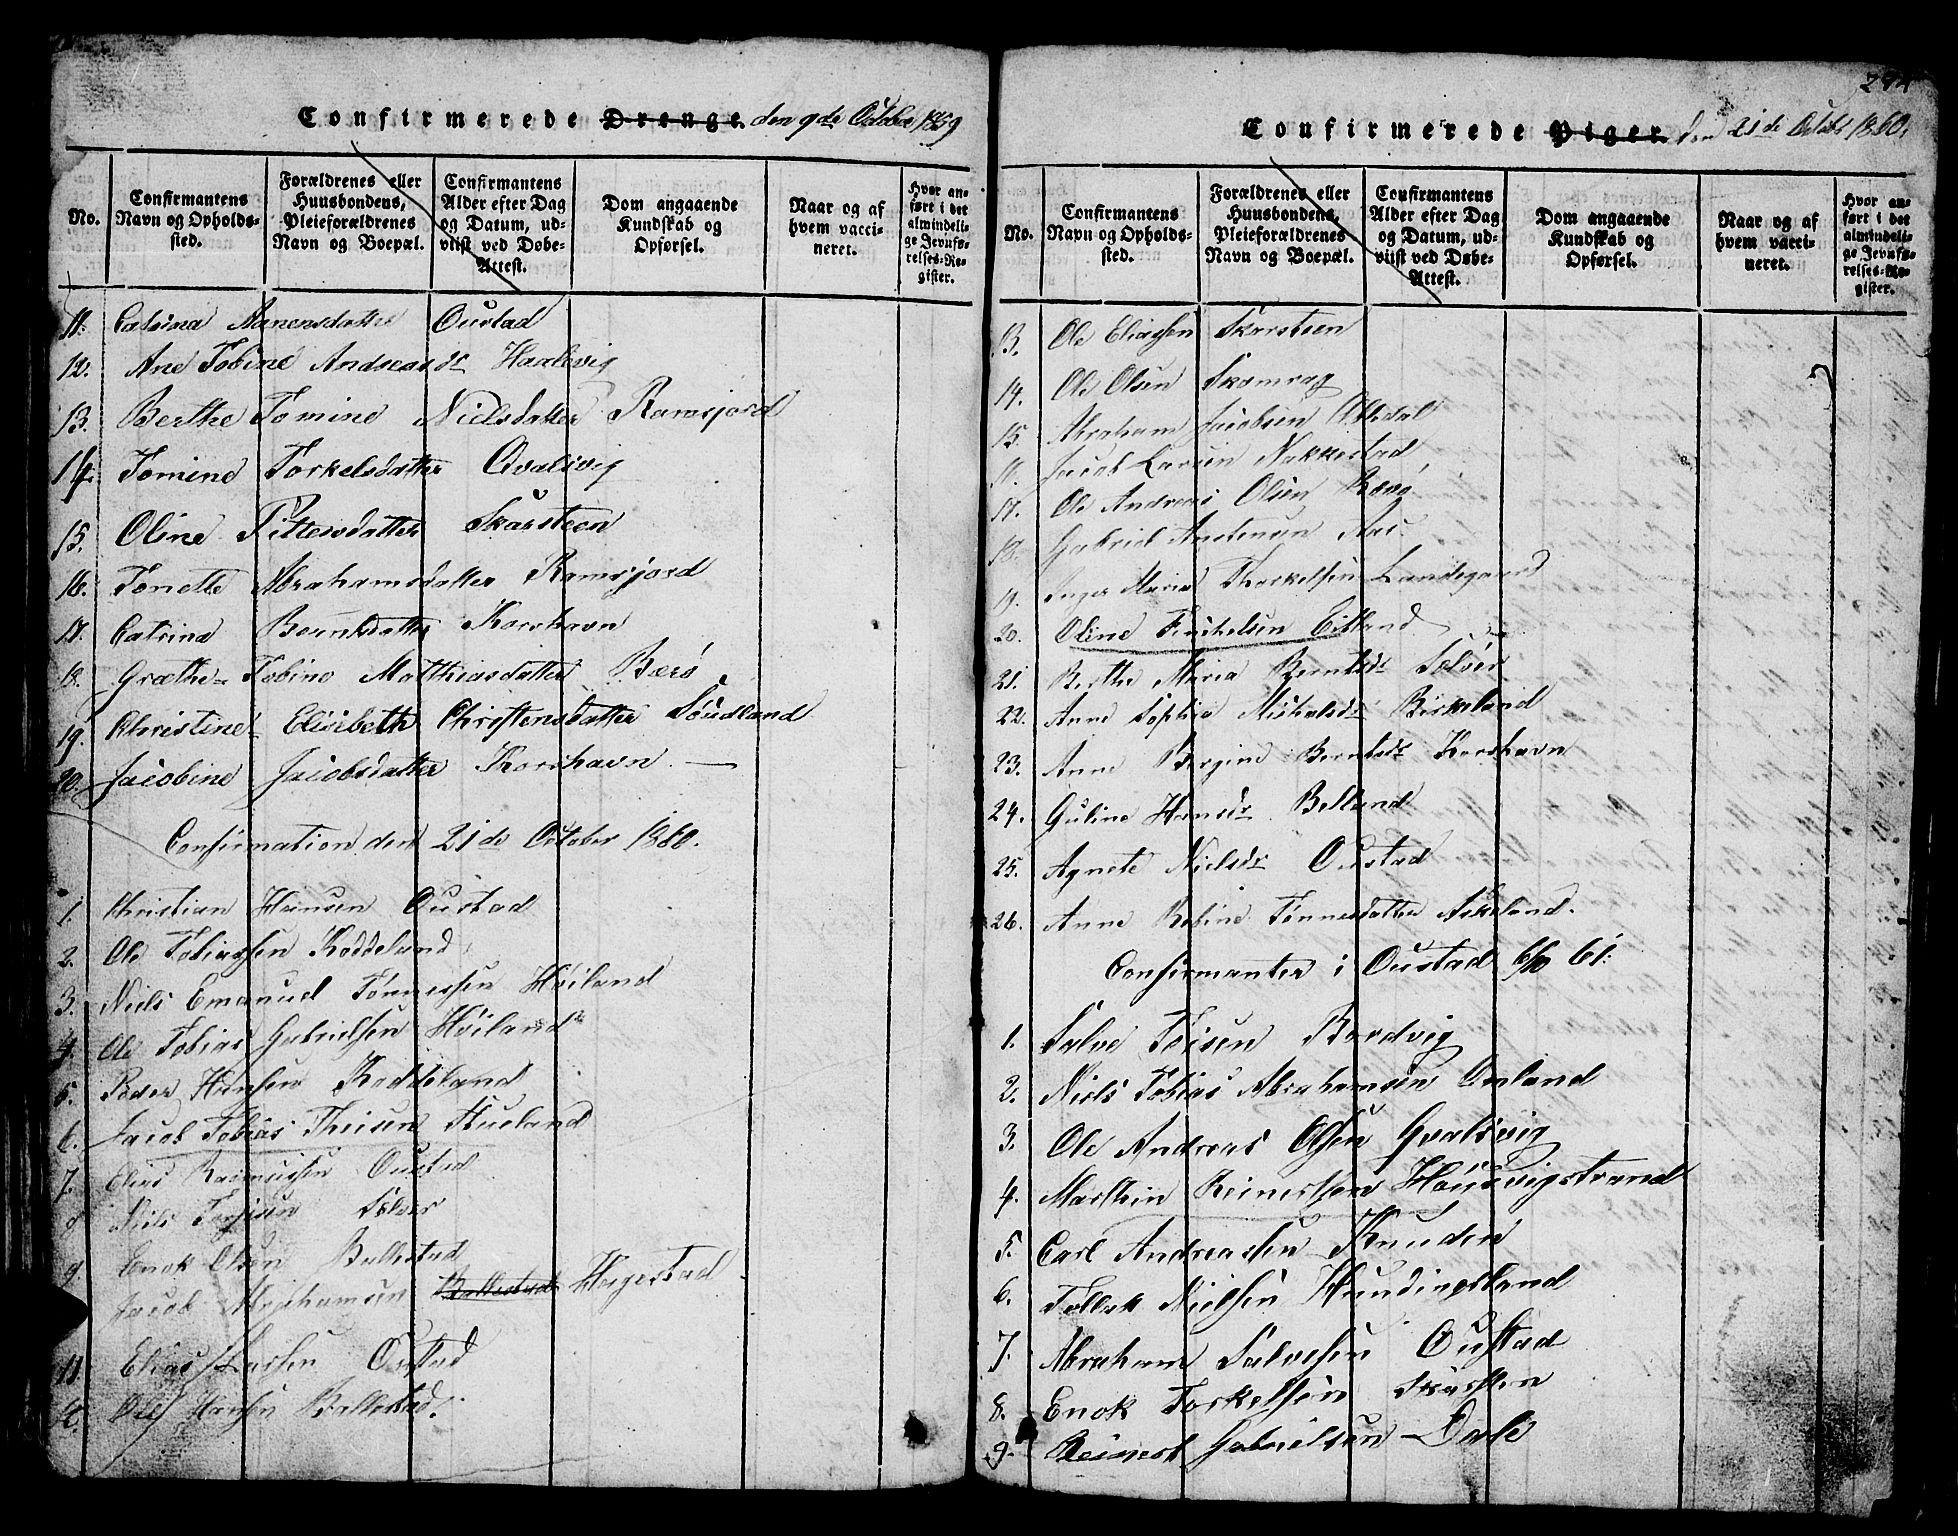 Confirmerede Drenge. den 9de October 1859
No.
Confirmantens Navn og Opholds-sted.
Forældrenes eller Huusbondens, Pleieforældrenes Navn og Boepæl.
Confirmantens Alder efter Dag og Datum, ud-viist ved Døbe-Attest.
Dom angaaende Kundskab og Opførsel.
Naar og af hvem vacci-neret.
Hvor an-ført i det almindeli-ge Jevnfø-relses-Re-gister.
11. Catrina Aanensdatter Oustad
12. Ane Tobine Andreasdr Haalevig
13. Berthe Tomine Nielsdatter Ramsjord
14. Tomine Torkelsdatter Qvalsvig
15. Oline Pittersdatter Skarsteen
16. Tonette Abrahamsdatter Ramsjord
17. Catrina Berntsdatter Korshavn
18. Græthe Tobine Matthiasdatter Bærø
19. Christine Elisibeth Christensdatter Søudland
20. Jacobine Jacobsdatter Korshavn
Confirmation den 21de October 1860.
1. Christian Hansen Oustad
2. Ole Tobiassen Roddeland
3. Niels Emanuel Tønnessen Høiland
4. Ole Tobias Gabrielsen Høiland
5. Peder Hansen Roddeland
6. Jacob Tobias Theisen Hueland
7. Elias Rasmussen Oustad
8 Niels Torjusen Sølver
9 Enok Olsen Ballestad
Jacob Abrahamsen Ballestad Hagestad
11 Elias Larsen Oustad
Ole Hansen Ballestad.
274
Confirmerede Piger. den 21de Octobr 1860.
No.
Confirmantens Navn og Opholds-sted.
Forældrenes eller Huusbondens, Pleieforældrenes Navn og Boepæl.
Confirmantens Alder efter Dag og Datum, ud-viist ved Døbe-Attest.
Dom angaaende Kundskab og Opførsel.
Naar og af hvem vacci-neret.
Hvor an-ført i det almindeli-ge Jevnfø-relses-Re-gister.
13. Ole Eliassen Skarsteen
14. Ole Olsen Skamrag
15. Abraham Jacobsen
Jacob Larsen Nakkestad
17. Ole Andreas Olsen Bærø
18. Gabriel Anstensen Aas
19. Inger Maria Thorkelsen Landegaard
20. Oline Eitland
21. Berthe Maria Berntsdr Sølver
22. Anne Sophie Michalsdr Birkeland
23. Anne Bergine Berntsdr Korshavn
24. Guline Hansdr Betland
25. Agnete Nielsdr Oustad
26. Anne Robine Tønnesdatter Askeland.
Confirmanter i Oustad 6/10 61.
1. Salve Toisen Bordvig
2. Niels Tobias Abrahamsen Omland
3. Ole Andreas Olsen Qvalsvig
4. Marthin Reinertsen Høusvigstrand
5. Carl Andreassen Knuden
6. Tollak Nielsen Hundingsland
7. Abraham Salvesen Oustad
8. Enok Torkelsen Skarsten
9. Reinert Gabrielsen Dale